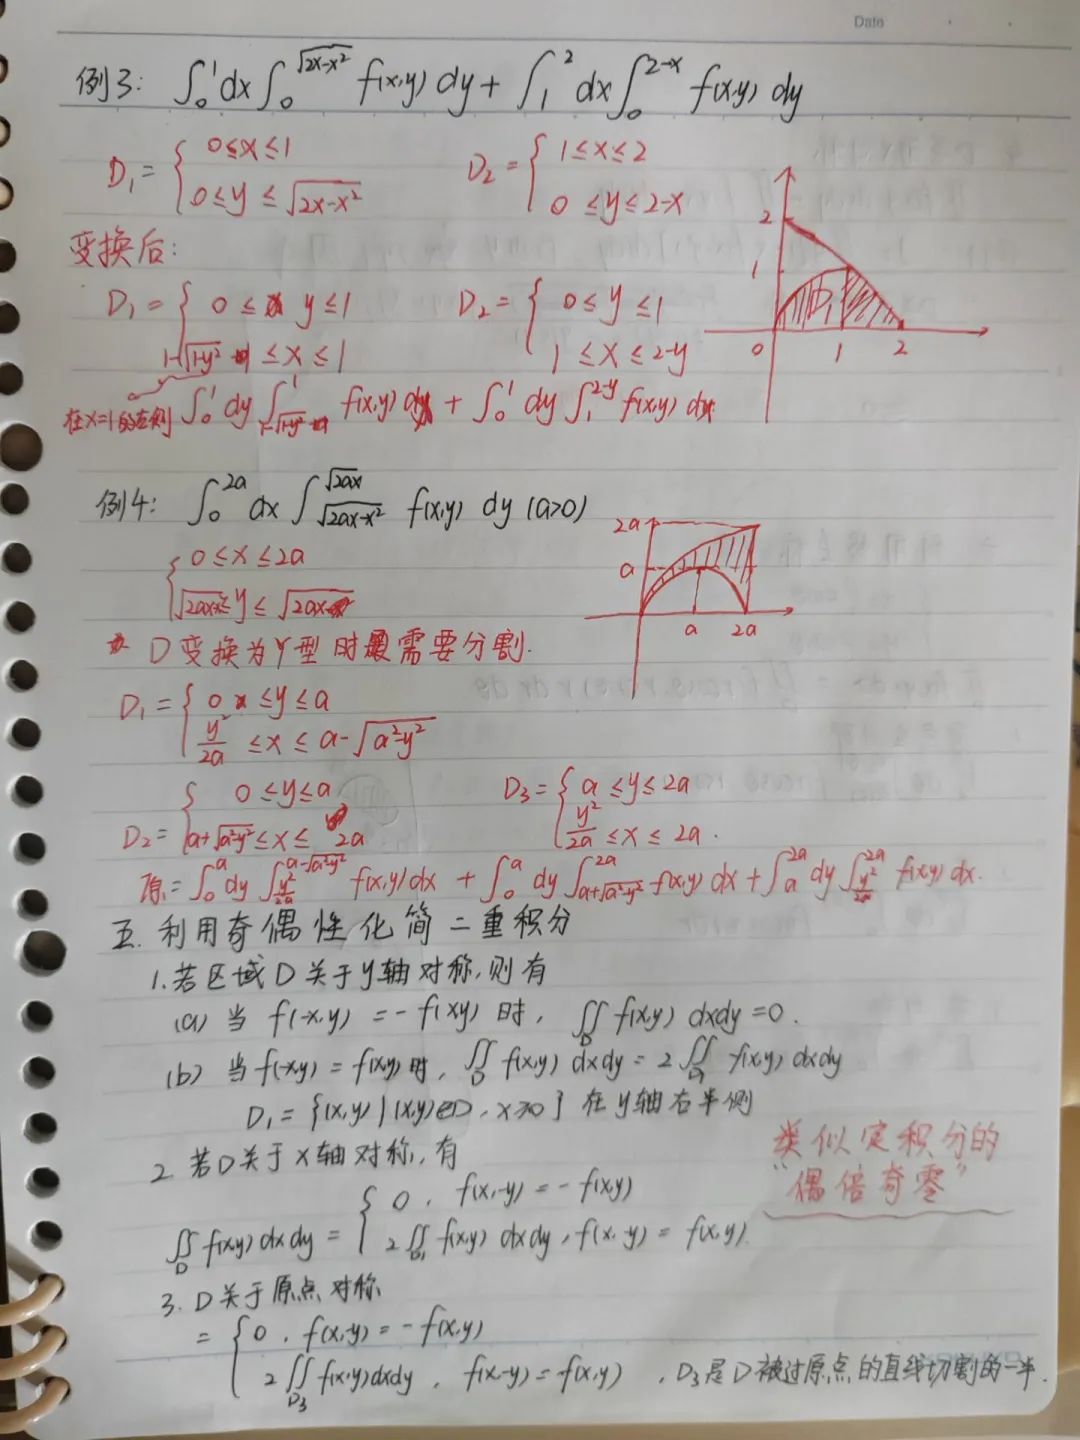 Date
例3: ∫₀¹dx∫₀^{√(2x-x²)} f(x,y) dy + ∫₁² dx∫₀^{2-x} f(x,y) dy
D₁= { 0≤x≤1   D₂= { 1≤x≤2
0≤y≤√(2x-x²)   0≤y≤2-x
变换后:
D₁= { 0≤y≤1   D₂= { 0≤y≤1
1-√(1-y²) ≤x≤1   1≤x≤2-y
2
1
D₁
0 1 2
在x=1的左则 ∫₀¹dy∫_{1-√(1-y²)}^{1} f(x,y) dx + ∫₀¹ dy∫₁^{2-y} f(x,y) dx
例4: ∫₀^{2a} dx∫_{√(2ax-x²)}^{√(2ax)} f(x,y) dy (a>0)
{ 0≤x≤2a
√(2ax-x²)≤y≤√(2ax)
2a
a
a 2a
D变换为Y型时需要分割.
D₁= { 0≤y≤a
y²/2a ≤x≤ a-√(a²-y²)
D₂= { 0≤y≤a   D₃= { a≤y≤2a
a+√(a²-y²)≤x≤2a   y²/2a ≤x≤2a.
原=∫₀^a dy∫_{y²/2a}^{a-√(a²-y²)} f(x,y)dx + ∫₀^a dy∫_{a+√(a²-y²)}^{2a} f(x,y) dx+∫_a^{2a} dy∫_{y²/2a}^{2a} f(x,y) dx.
五. 利用奇偶性化简二重积分
1.若区域D关于y轴对称,则有
(a) 当 f(-x,y) = -f(xy) 时, ∬_D f(x,y) dxdy=0.
(b) 当f(-x,y)=f(x,y)时, ∬_D f(x,y) dxdy=2∬_{D₁} f(x,y) dxdy
D₁={(x,y)|(x,y)∈D, x≥0} 在y轴右半侧
2. 若D关于x轴对称,有
∬_D f(x,y)dxdy= { 0, f(x,-y)=-f(x,y)
2∬_{D₁} f(x,y) dxdy, f(x,-y)=f(x,y).
类似定积分的
"偶倍奇零"
3. D关于原点对称
= { 0, f(x,y)=-f(x,y)
2∬_{D₃} f(x,y)dxdy, f(x,-y)=f(x,y), D₃是D被过原点的直线切割的一半.